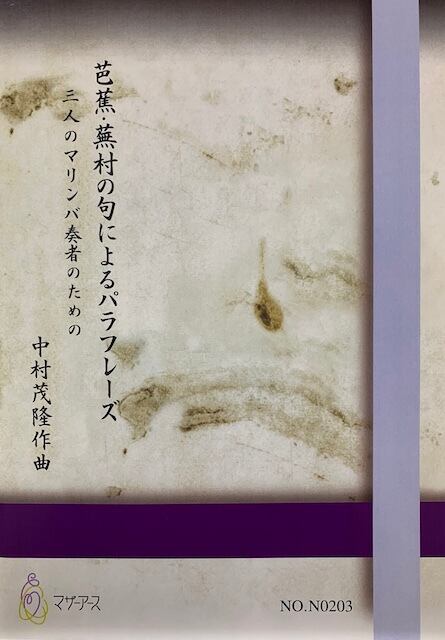 芭蕉・蕪村の句によるパラフレーズ
三人のマリンバ奏者のための
中村茂隆作曲
マザーアース
NO.N0203